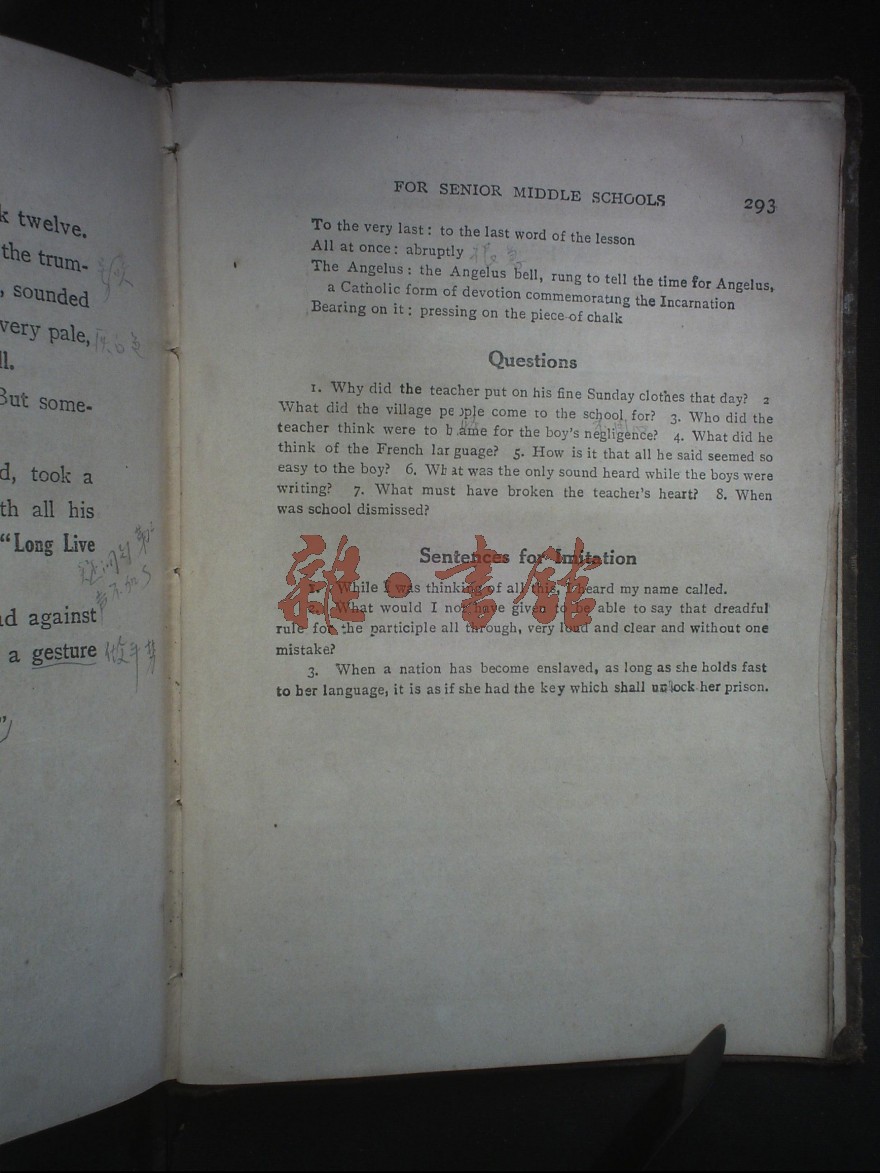 k twelve.
the trum-
, sounded
very pale,
ll.
But some-
d, took a
th all his
"Long Live
d against
a gesture
"
FOR SENIOR MIDDLE SCHOOLS 293
To the very last: to the last word of the lesson
All at once: abruptly
The Angelus: the Angelus bell, rung to tell the time for Angelus,
a Catholic form of devotion commemorating the Incarnation
Bearing on it: pressing on the piece of chalk
Questions
1. Why did the teacher put on his fine Sunday clothes that day? 2
What did the village people come to the school for? 3. Who did the
teacher think were to blame for the boy's negligence? 4. What did he
think of the French language? 5. How is it that all he said seemed so
easy to the boy? 6. What was the only sound heard while the boys were
writing? 7. What must have broken the teacher's heart? 8. When
was school dismissed?
Sentences for Imitation
1. While I was thinking of all this, I heard my name called.
2. What would I not have given to be able to say that dreadful
rule for the participle all through, very loud and clear and without one
mistake?
3. When a nation has become enslaved, as long as she holds fast
to her language, it is as if she had the key which shall unlock her prison.
雜·書館